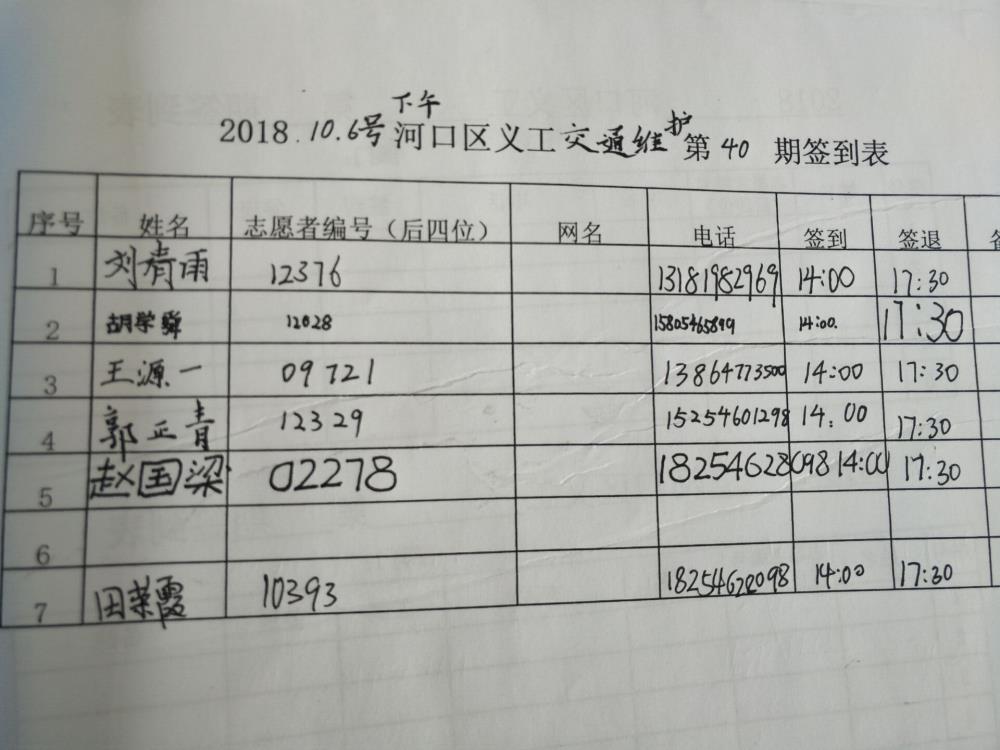 下午
2018.10.6号河口区义工交通维护第40期签到表
序号 姓名 志愿者编号（后四位） 网名 电话 签到 签退 备
1 刘青雨 12376 13181982969 14:00 17:30
2 胡学舜 12028 15805465899 14:00. 17:30
3 王源一 09721 13864773500 14:00 17:30
4 郭正青 12329 15254601298 14:00 17:30
5 赵国梁 02278 18254628098 14:00 17:30
6
7 田荣霞 10393 18254628098 14:00 17:30